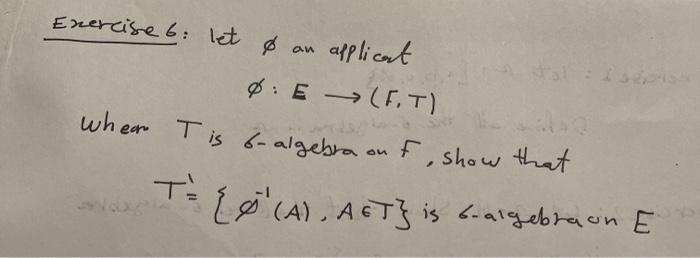 Exercise 6: let ϕ an applicat
ϕ : E → (F, T)
when T is 6-algebra on F, show that
T' = { ϕ⁻¹(A), A ∈ T } is 6-algebra on E